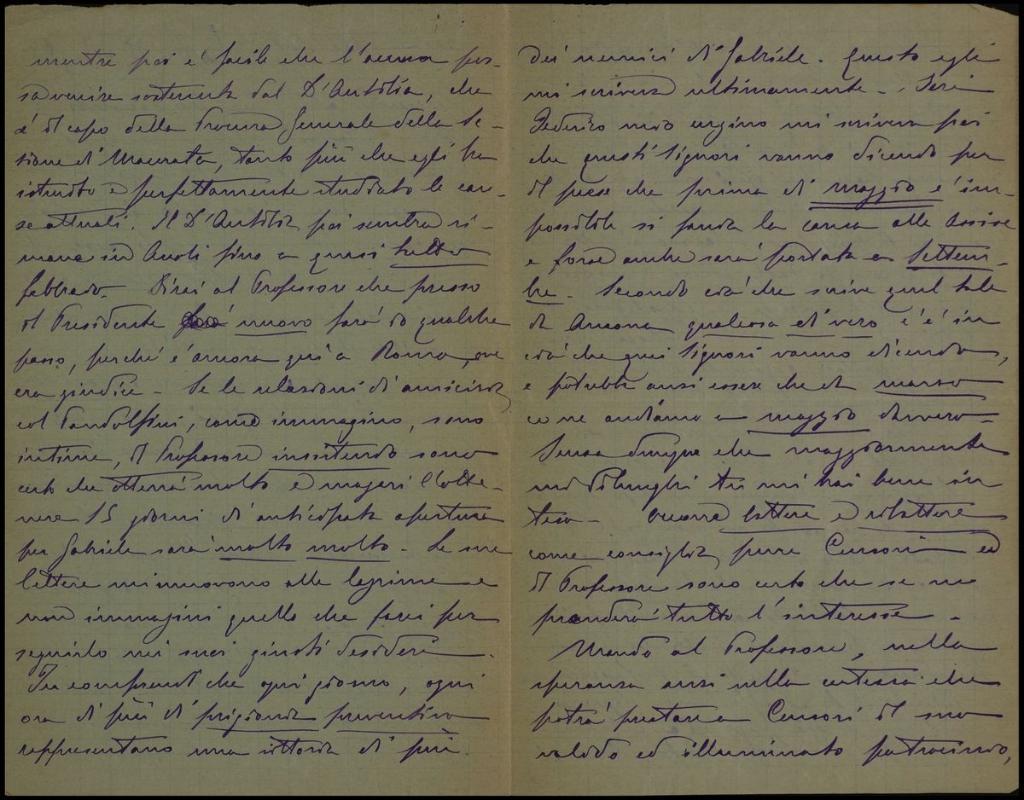 mentre poi è facile che l'accusa pos-
sa venire sostenuta dal D'Antilia, che
è il capo della Procura Generale della Se-
zione di Macerata, tanto più che egli ha
istruito e perfettamente studiato le cau-
se attuali. Il D'Antilia poi sembra ri-
mane in Ascoli fino a quasi tutto
febbraio. Dirai al Professore che presso
il Presidente nuovo farò io qualche
passo, perché è ancora qui a Roma, ove
era giudice. Se le relazioni di amicizia
col Pandolfini, come immagino, sono
intime, il Professore insistendo sono
certo che otterrà molto e magari l'otte-
nere 15 giorni di anticipata apertura
per Gabriele sarà molto molto. Le sue
lettere mi muovono alle lagrime e
non immagini quello che farei per
seguirlo nei suoi giusti desideri.
Tu comprendi che ogni giorno, ogni
ora di più di prigionia preventiva
rappresentano una vittoria di più
dei nemici di Gabriele. Questo egli
mi scriveva ultimamente. Ieri
Federico mio cugino mi scriveva poi
che questi Signori vanno dicendo per
il paese che prima di maggio è im-
possibile si faccia la causa alle Assise
e forse anche sarà portata a settem-
bre. Secondo ciò che scrive quel tale
di Ancona qualcosa di vero c'è in
ciò che quei Signori vanno dicendo,
e potrebbe anzi essere che da marzo
ce ne andiamo a maggio davvero.
Senza dunque che maggiormente
mi dilunghi tu mi hai bene in-
teso. lettere e rilettere
come consiglia pure Censori ed
il Professore sono certo che se ne
prenderà tutto l'interesse.
Mando al Professore, nella
speranza anzi nella certezza che
potrà prestare a Censori il suo
valido ed illuminato patrocinio,